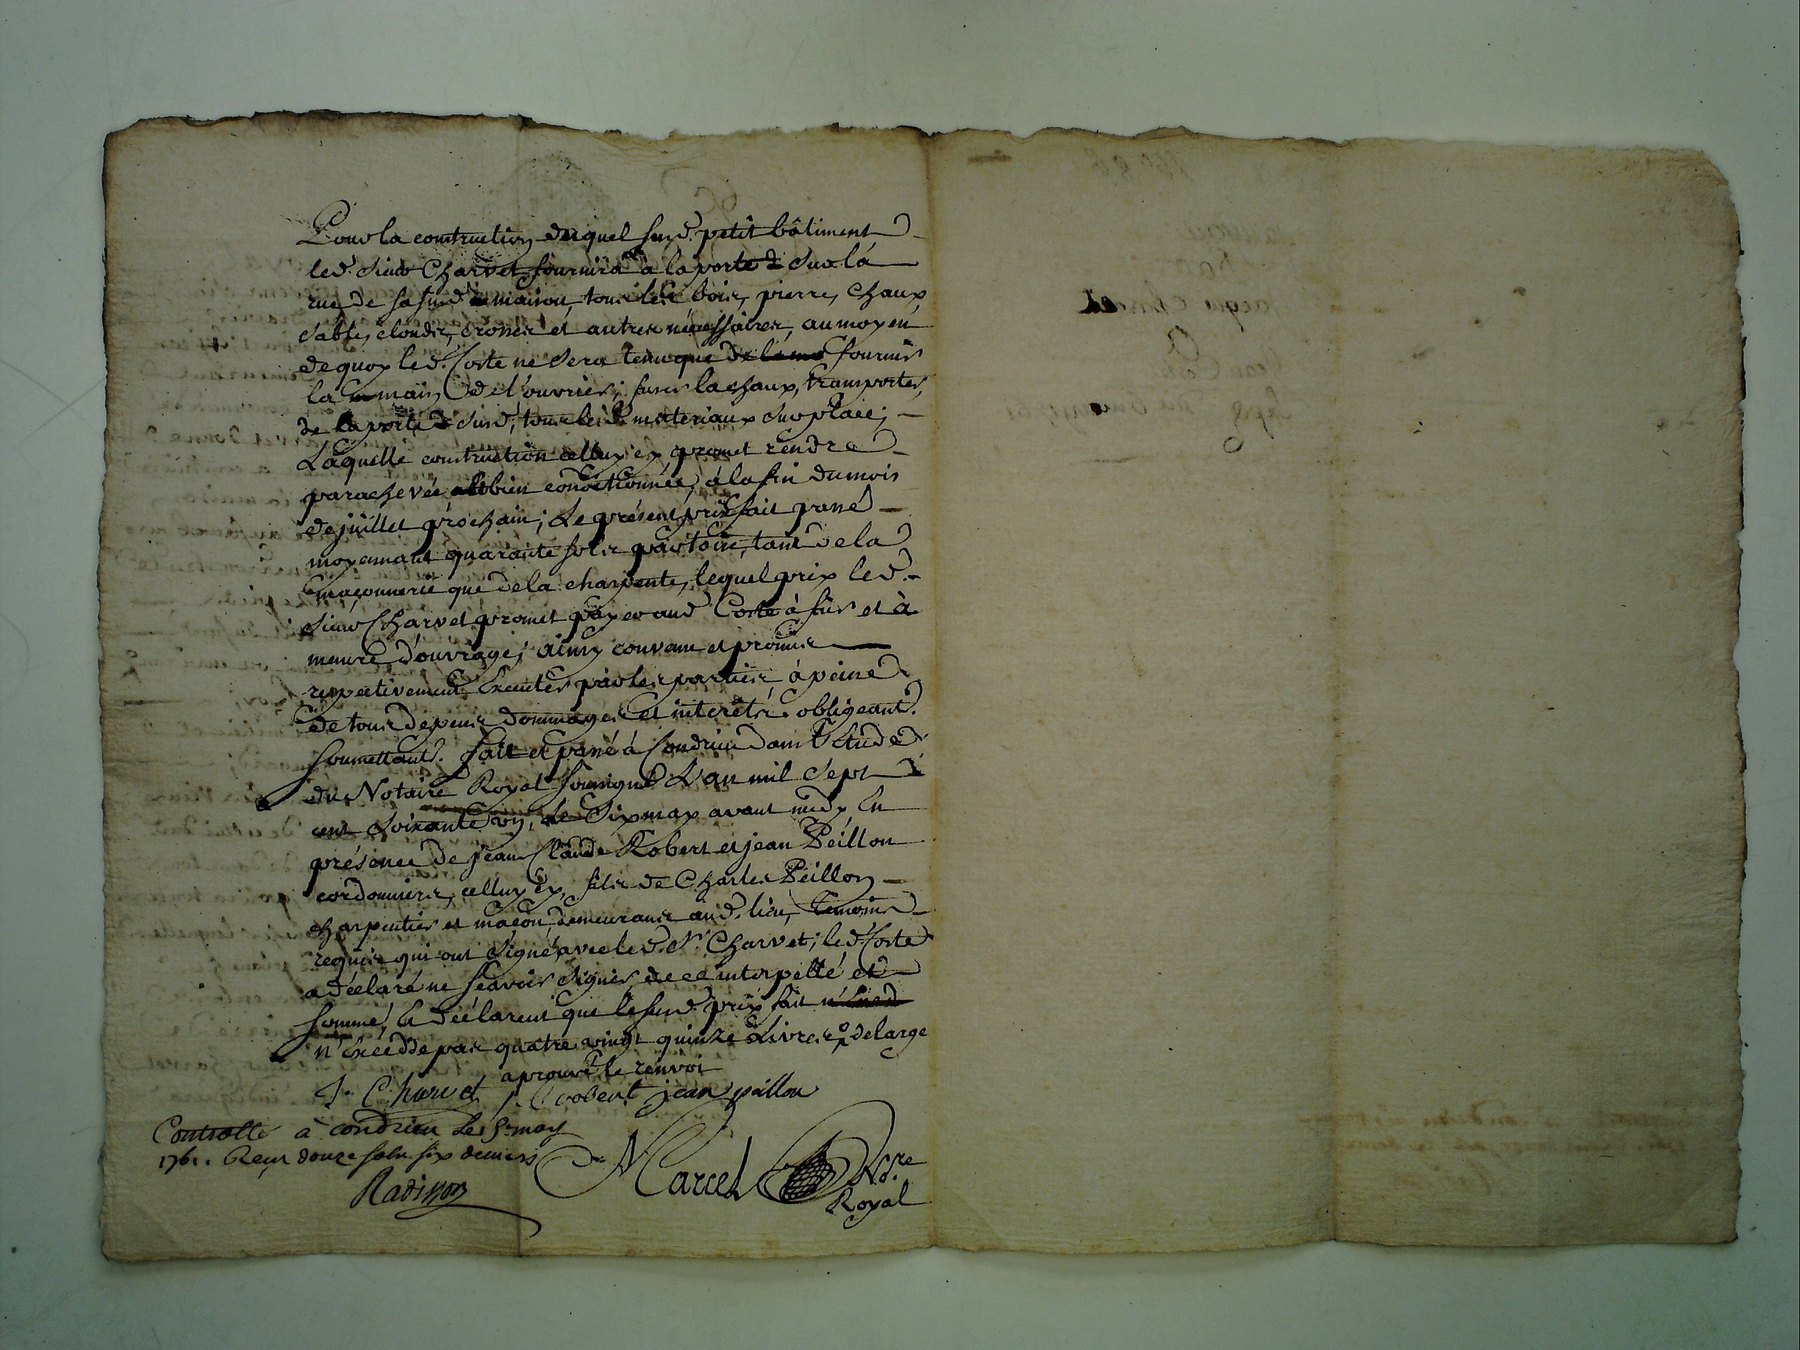 Pour la construction duquel susd. petit bâtiment
led. sieur Charvet fournira à la porte & sur la
rue de sa susd. maison tous les bois, pierre, chaux
sable, cloudz, et autres nécessaires, au moyen
de quoy led. Coste ne sera tenu que de fournir
la main de l'ouvrier, fuser la chaux, transporter
de la porte susd. tous les materiaux sur place;
Laquelle construction celluy cy promet rendre
parachevée et bien conditionnée, à la fin du mois
de juillet prochain; Le présent prix fait passé
moyennant quarante sols par toise, tant de la
maçonnerie que de la charpente, lequel prix led.
sieur Charvet promet payer aud. Coste à fur et à
mesure d'ouvrage; ainsy convenu et promis
respectivement executer par les parties, à peine
de tous depens dommages et interêts. obligeant.
soumettant. fait et passé à Condrieu dans l'étude
du Notaire Royal soussigné L'an mil sept
cent soixante un, le six may avant midy En
présence de Jean Claude Robert et jean Peillon
cordonniers, celluy cy, fils de Charles Peillon
charpentier et maçon, demeurans aud. lieu, temoins
requis qui ont signé avec led. Sr. Charvet; led. Coste
a déclaré ne sçavoir signer de ce interpellé et
sommé, Et déclarent que le susd. prix fait
n'excedde pas quatre vingt quinze Livres de large
aprouvé le renvoi
J. Charvet J C robert jean peillon
Controllé à condrieu le 8 may
1761. Reçu douze sols six deniers
Marcel Nore
Royal